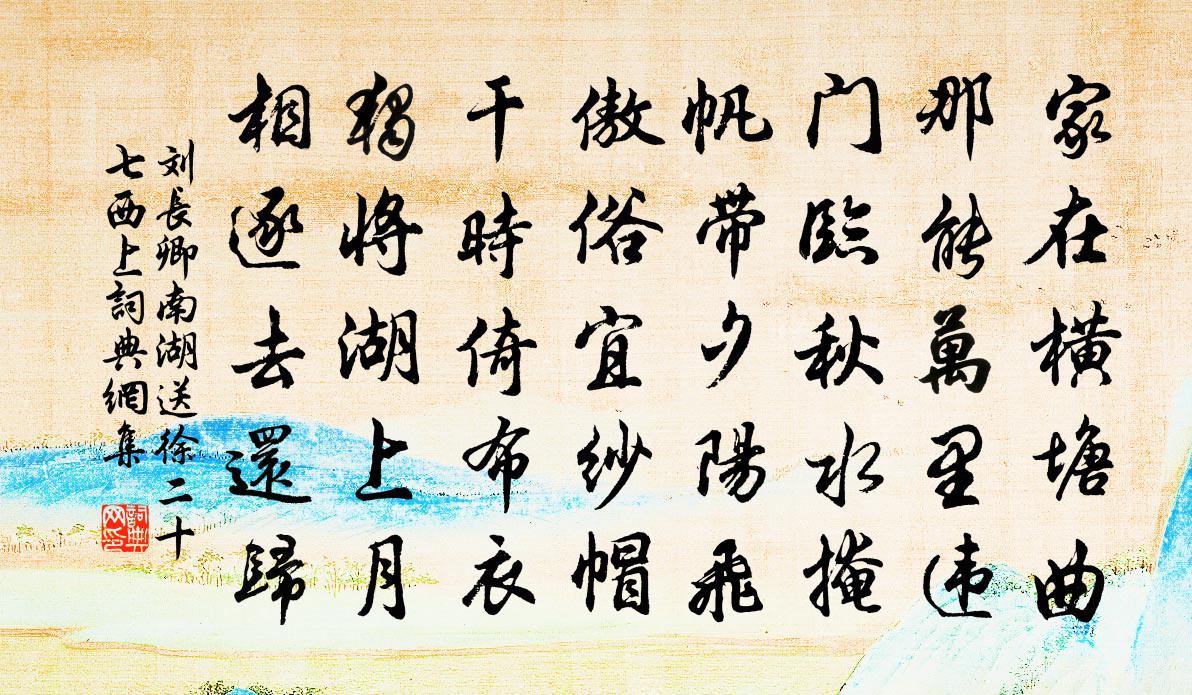 家在横塘曲
那能萬里违
门臨秋水掩
帆带夕陽飛
傲俗宜纱帽
干時倚布衣
獨將湖上月
相逐去還歸
刘長卿南湖送徐二十
七西上詞典網集